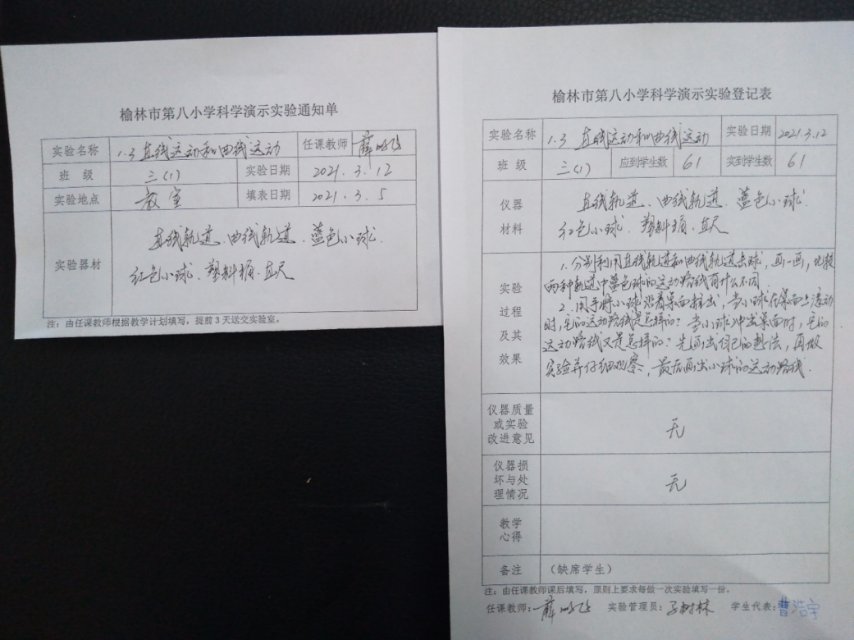 榆林市第八小学科学演示实验通知单
实验名称 1.3 直线运动和曲线运动 任课教师 薛
班 级 三(1) 实验日期 2021.3.12
实验地点 教室 填表日期 2021.3.5
实验器材 直线轨道、曲线轨道、蓝色小球、
红色小球、塑料桶、直尺
注：由任课教师根据教学计划填写，提前3天送交实验室。
榆林市第八小学科学演示实验登记表
实验名称 1.3 直线运动和曲线运动 实验日期 2021.3.12
班 级 三(1) 应到学生数 61 实到学生数 61
仪器 直线轨道、曲线轨道、蓝色小球
材料 红色小球、塑料桶、直尺
实验 过程 及其 效果
1.分别利用直线轨道和曲线轨道击球，画一画，比较
两种轨道中蓝色球的运动路线有什么不同。
2.用手将小球沿着桌面推出，当小球在桌面上滚动
时，它的运动路线是怎样的？当小球冲出桌面时，它的
运动路线又是怎样的？先画出自己的想法，再做
实验并仔细观察，最后画出小球的运动路线.
仪器质量
或实验
改进意见 无
仪器损
坏与处
理情况 无
教学
心得
备注 (缺席学生)
注：由任课教师课后填写，原则上要求每做一次实验填写一份。
任课教师：薛 实验管理员：树林 学生代表：曹浩宇